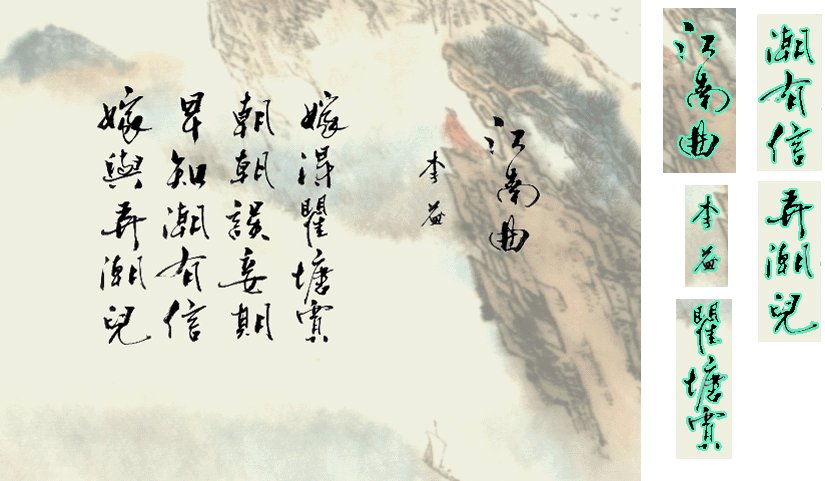 江南曲
李益
嫁得瞿塘賈
朝朝誤妾期
早知潮有信
嫁與弄潮兒
江南曲
李益
瞿塘賈
潮有信
弄潮兒